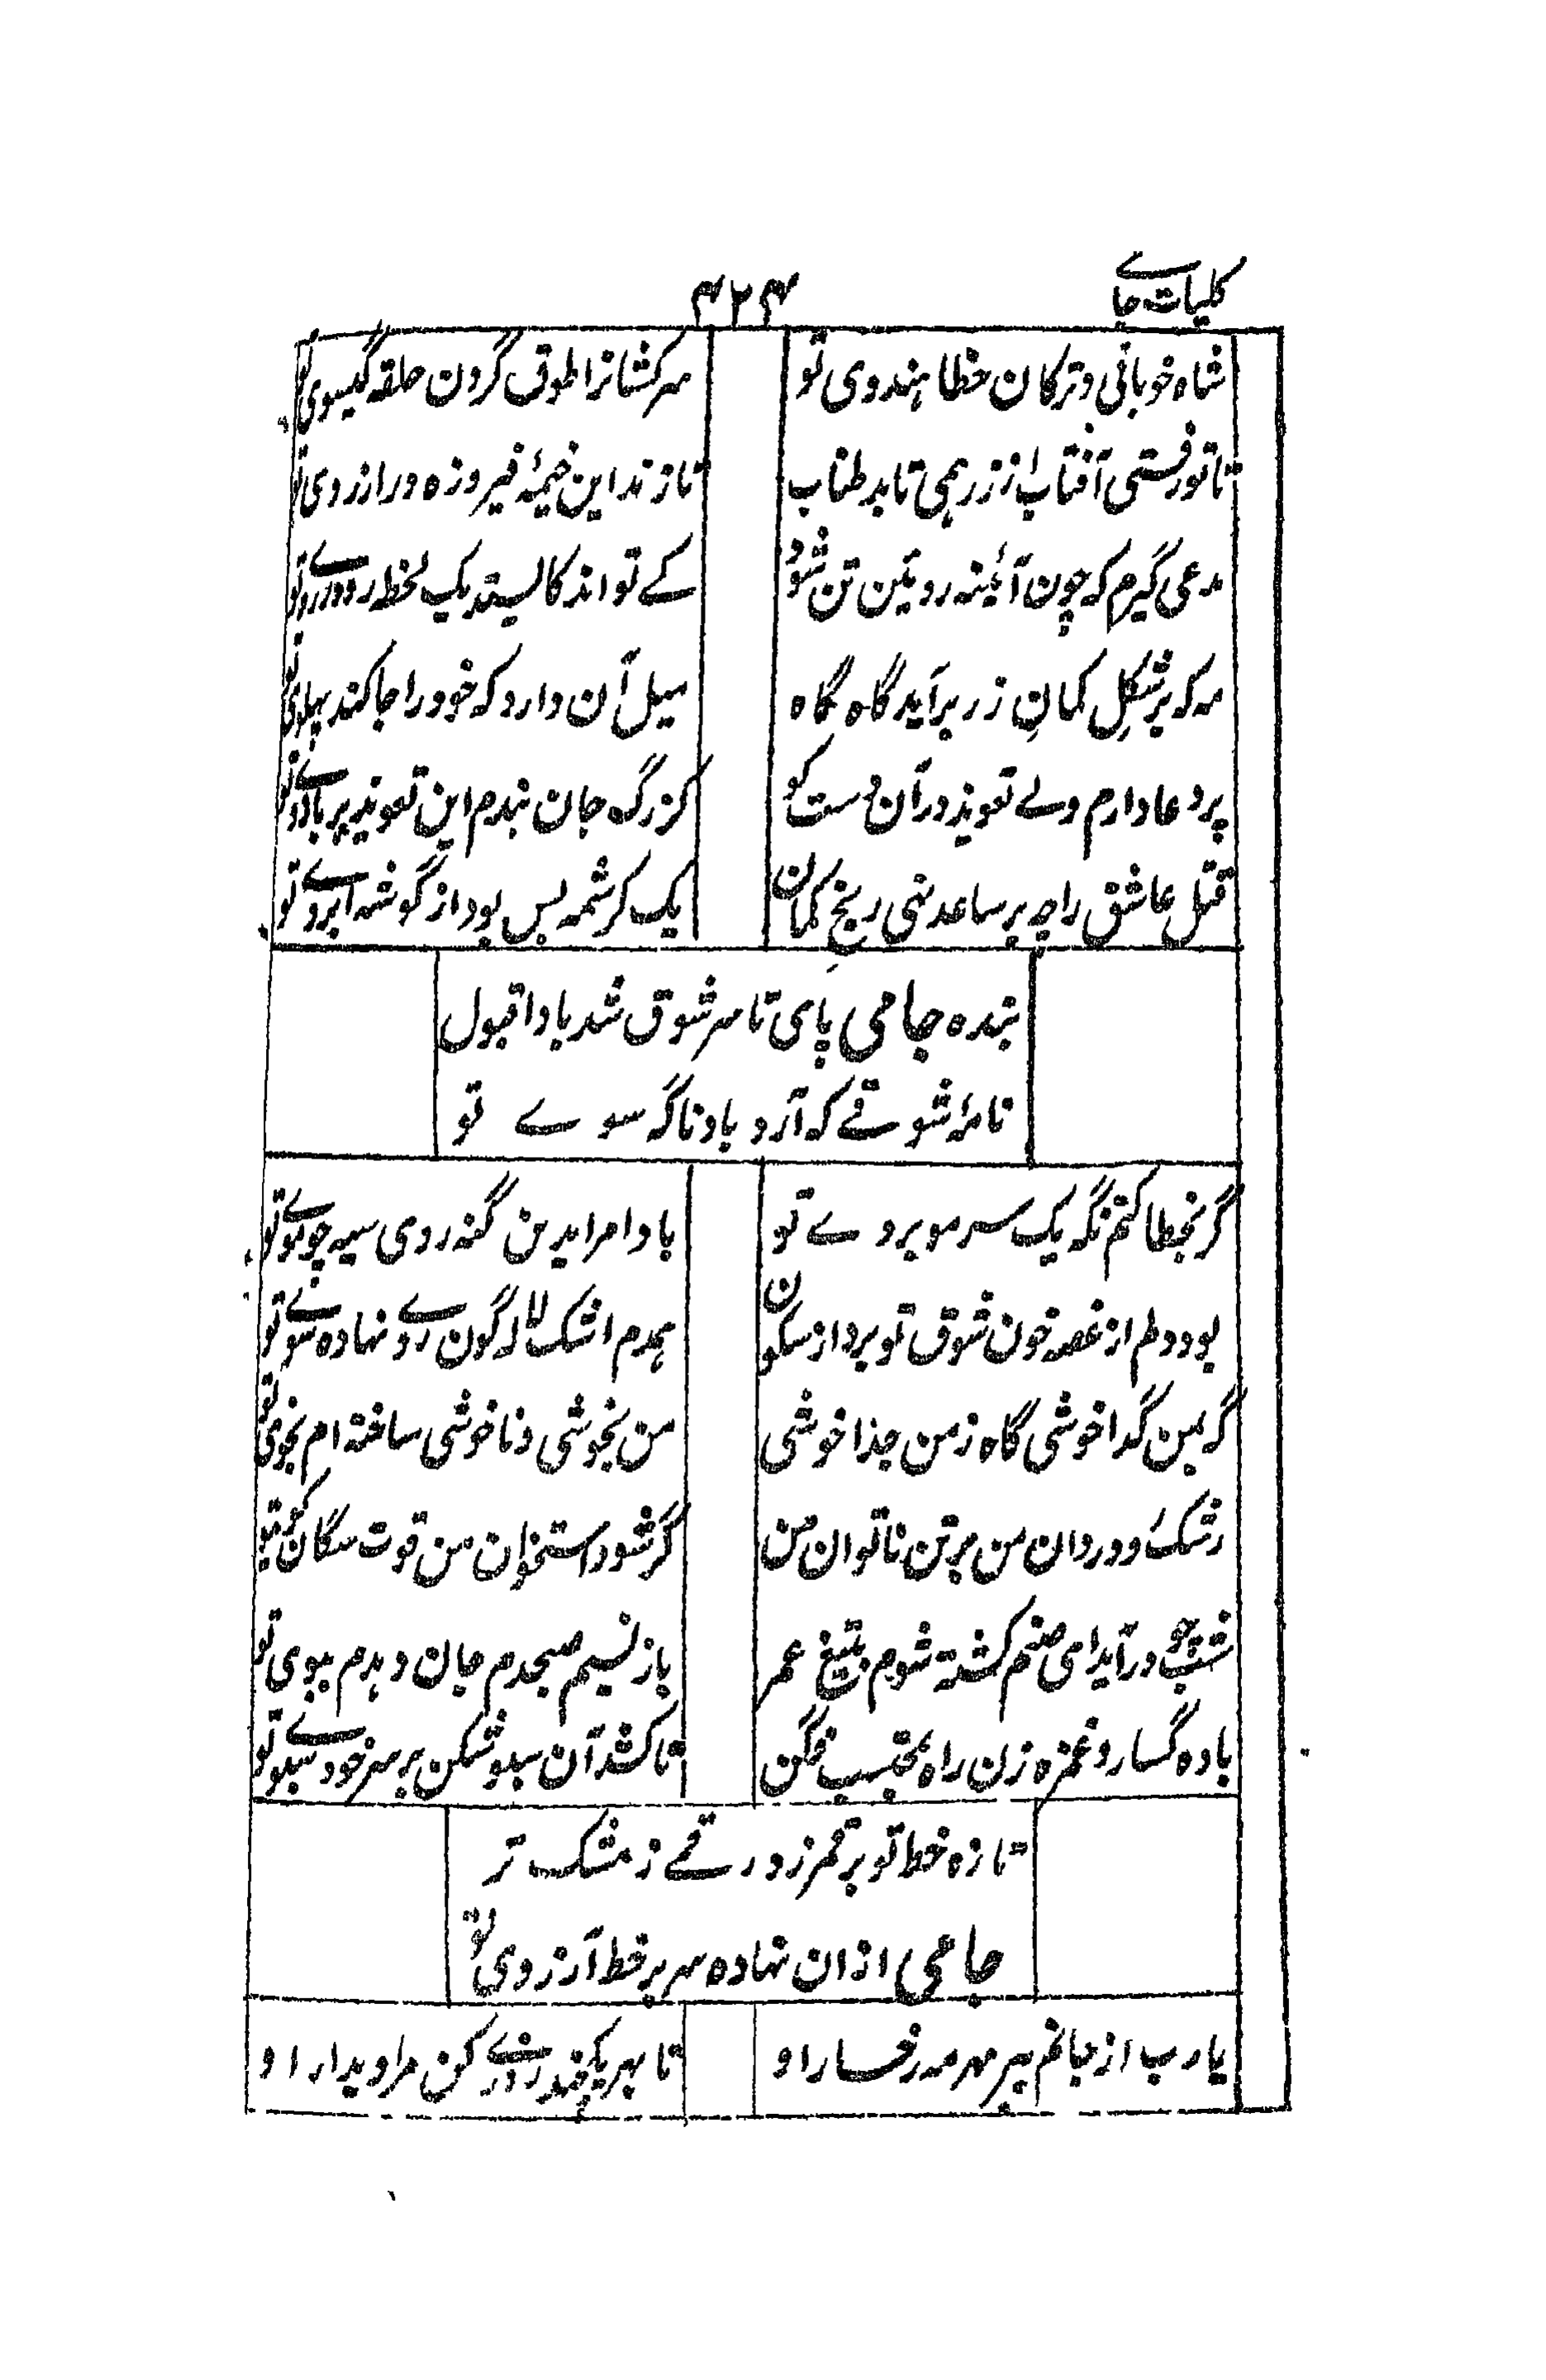 کلیات جامے
۴۲۴
شاه خوبانی و ترکان خطا هندوی تو
سرکشانرا طوق گردن حلقه گیسوی تو
تا تو رفتی آفتاب از زر همی تابد طناب
تا زند این خیمهٔ فیروزه در اردوی تو
مدعی گیرم که چون آئینه روئین تن شود
کے تواند کایستد یک لحظه رو در روی تو
مه که بر شکل کمان زر برآید گاه گاه
میل آن دارد که خود را جا کند پهلوی تو
پر دعا دارم ولے تعویذ در آن دست کو
کز رگ جان بندم این تعویذ بر بازوے تو
قتل عاشق را چه بر ساعد نهی رنج کمان
یک کرشمه بس بود از گوشه ابروے تو
بنده جامی پای تا سر شوق شد بادا قبول
نامهٔ شوقے که آرد باد ناگه سوے تو
گر بخطا کنم نگه یک سر مو بروے تو
بادا مرا بدین گنه روی سیه چو موے تو
بود دلم از غصه خون شوق تو برد از سکون
همدم اشک لاله گون روے نهاده سوے تو
گه بمن گدا خوشی گاه ز من جدا خوشی
من بخوشی و ناخوشی ساخته ام بخوی تو
رشک دود روان من بر تن ناتوان من
گر شود استخوان من قوت سگان کوی تو
شب چو درآید ای صنم کشته شوم بتیغ غم
باز نسیم صبحدم جان دهدم ببوی تو
باده گسار و غمزه زن راه بمحتسب فگن
تا کشد آن سبو شکن بر سر خود سبوے تو
تازه خط تو بر قمر زد رقمے ز مشک تر
جامی ازان نهاده سر بر خط آرزوی تو
یا رب از جانم ببر مهر مه رخسار او
تا بهر یکچند روزے کن مرا دیدار او